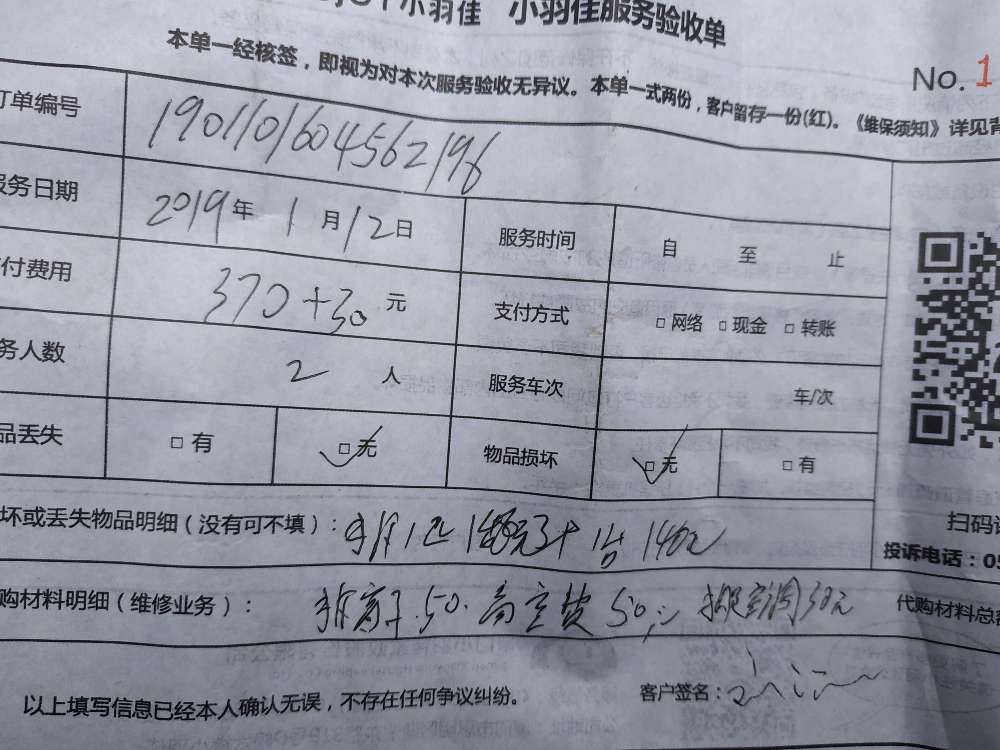 小羽佳 小羽佳服务验收单
本单一经核签，即视为对本次服务验收无异议。本单一式两份，客户留存一份(红)。《维保须知》详见背
No. 1
订单编号 1901101604562196
服务日期 2019年 1月12日 服务时间 自 至 止
付费用 370+30 元 支付方式 □网络 □现金 □转账
务人数 2 人 服务车次 车/次
品丢失 □有 □无 物品损坏 □无 □有
坏或丢失物品明细（没有可不填）：
扫码
投诉电话：05
购材料明细（维修业务）： 50. 高空费50 30元 代购材料总
以上填写信息已经本人确认无误，不存在任何争议纠纷。 客户签名：